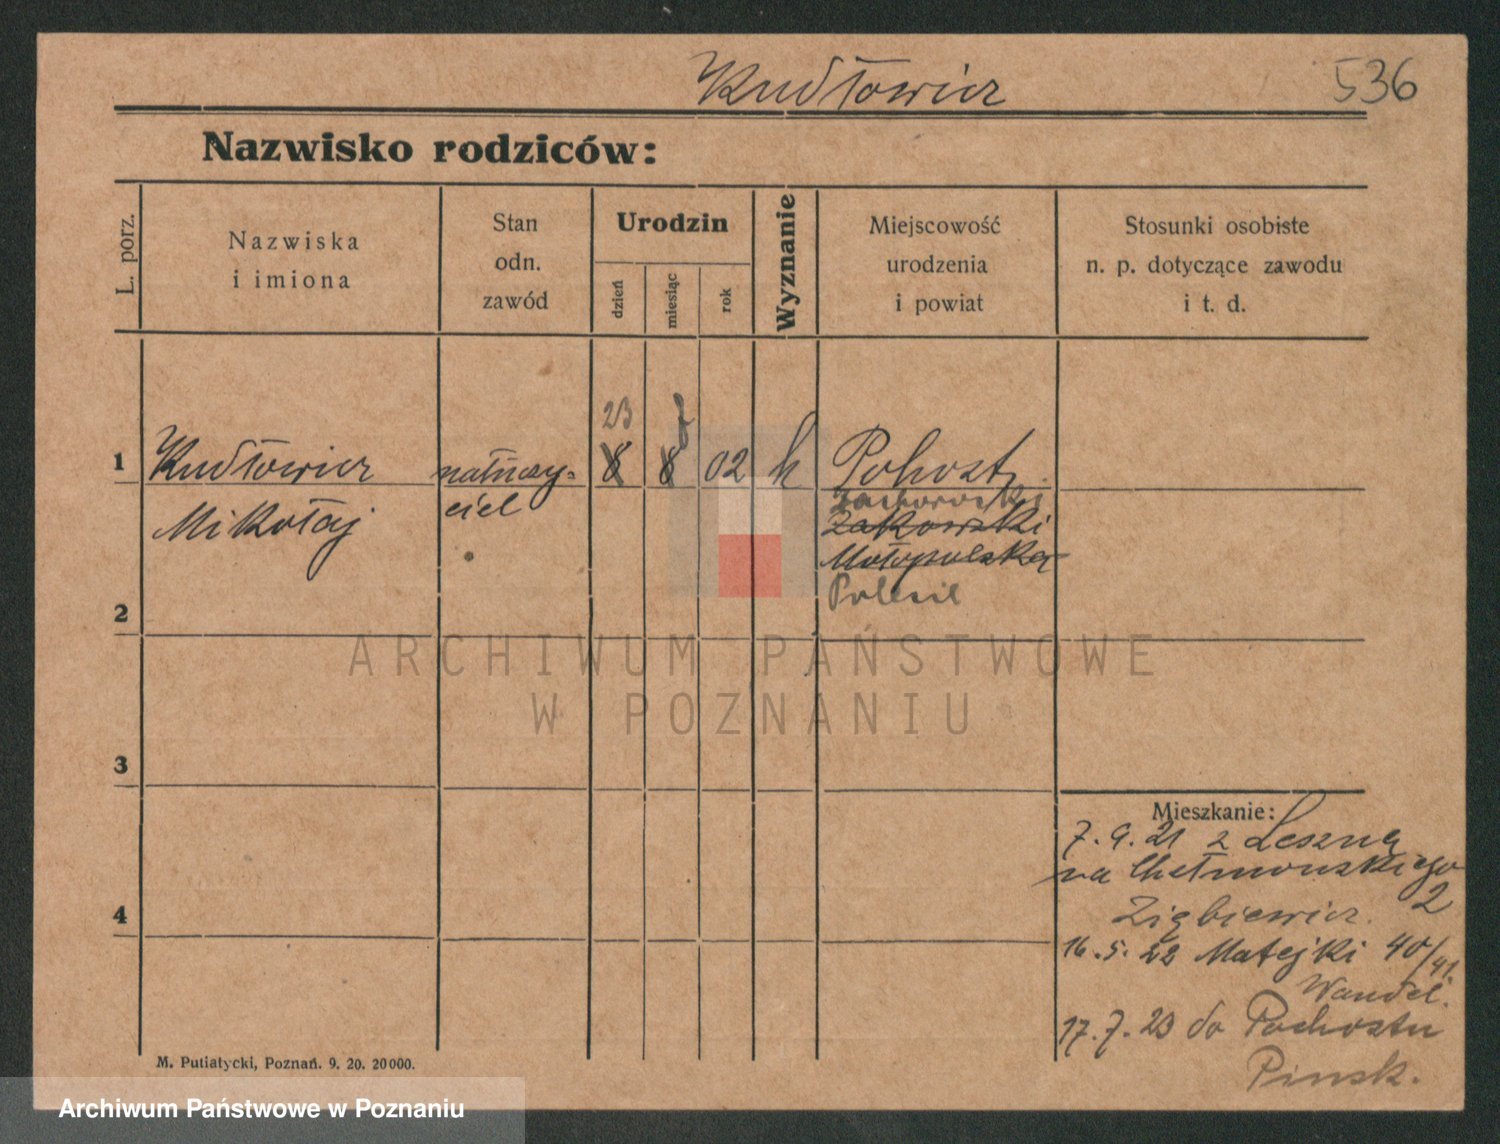 Kudłowicz 536
Nazwisko rodziców:
L. porz.
Nazwiska
i imiona
Stan
odn.
zawód
Urodzin
dzień
miesiąc
rok
Wyznanie
Miejscowość
urodzenia
i powiat
Stosunki osobiste
n. p. dotyczące zawodu
i t. d.
23
1 Kudłowicz 8 8 02 k Pohost
Mikołaj
ciel
Zakowski
Małopolska
Polesie
2
3
4
ARCHIWUM PAŃSTWOWE
W POZNANIU
Mieszkanie:
7. 9. 21 z Leszna
na Chełmońskiego
2
16. 5. 22 Matejki 40/41.
17. 7. 23 do Pochostu
Pinsk.
M. Putiatycki, Poznań. 9. 20. 20000.
Archiwum Państwowe w Poznaniu